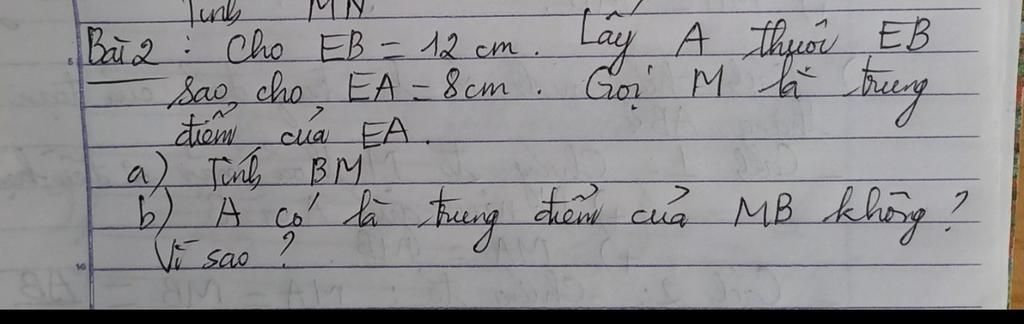 Tính MN
Bài 2 : Cho EB = 12 cm. Lấy A thuôc EB
sao cho EA = 8cm. Gọi M là trung
điểm của EA.
a) Tính BM
b) A có là trung điểm của MB không?
Vì sao?